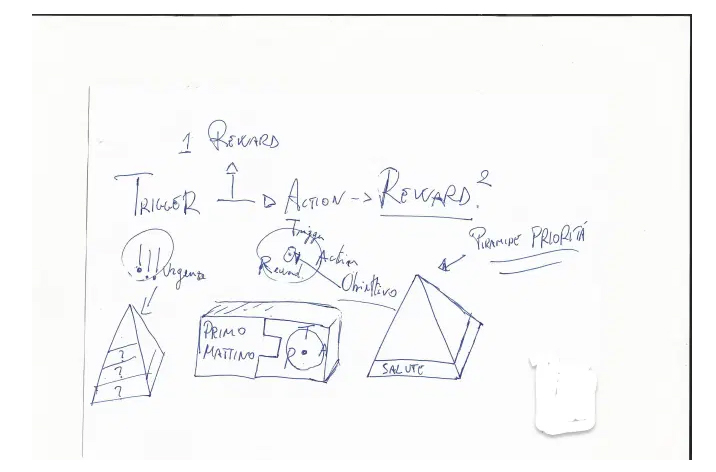 1 REWARD
TRIGGER → ACTION -> REWARD.2
!!! Urgente
Trigger
Action
Reward
Obiettivo
PIRAMIDE PRIORITÁ
?
?
?
PRIMO
MATTINO
T
R A
SALUTE